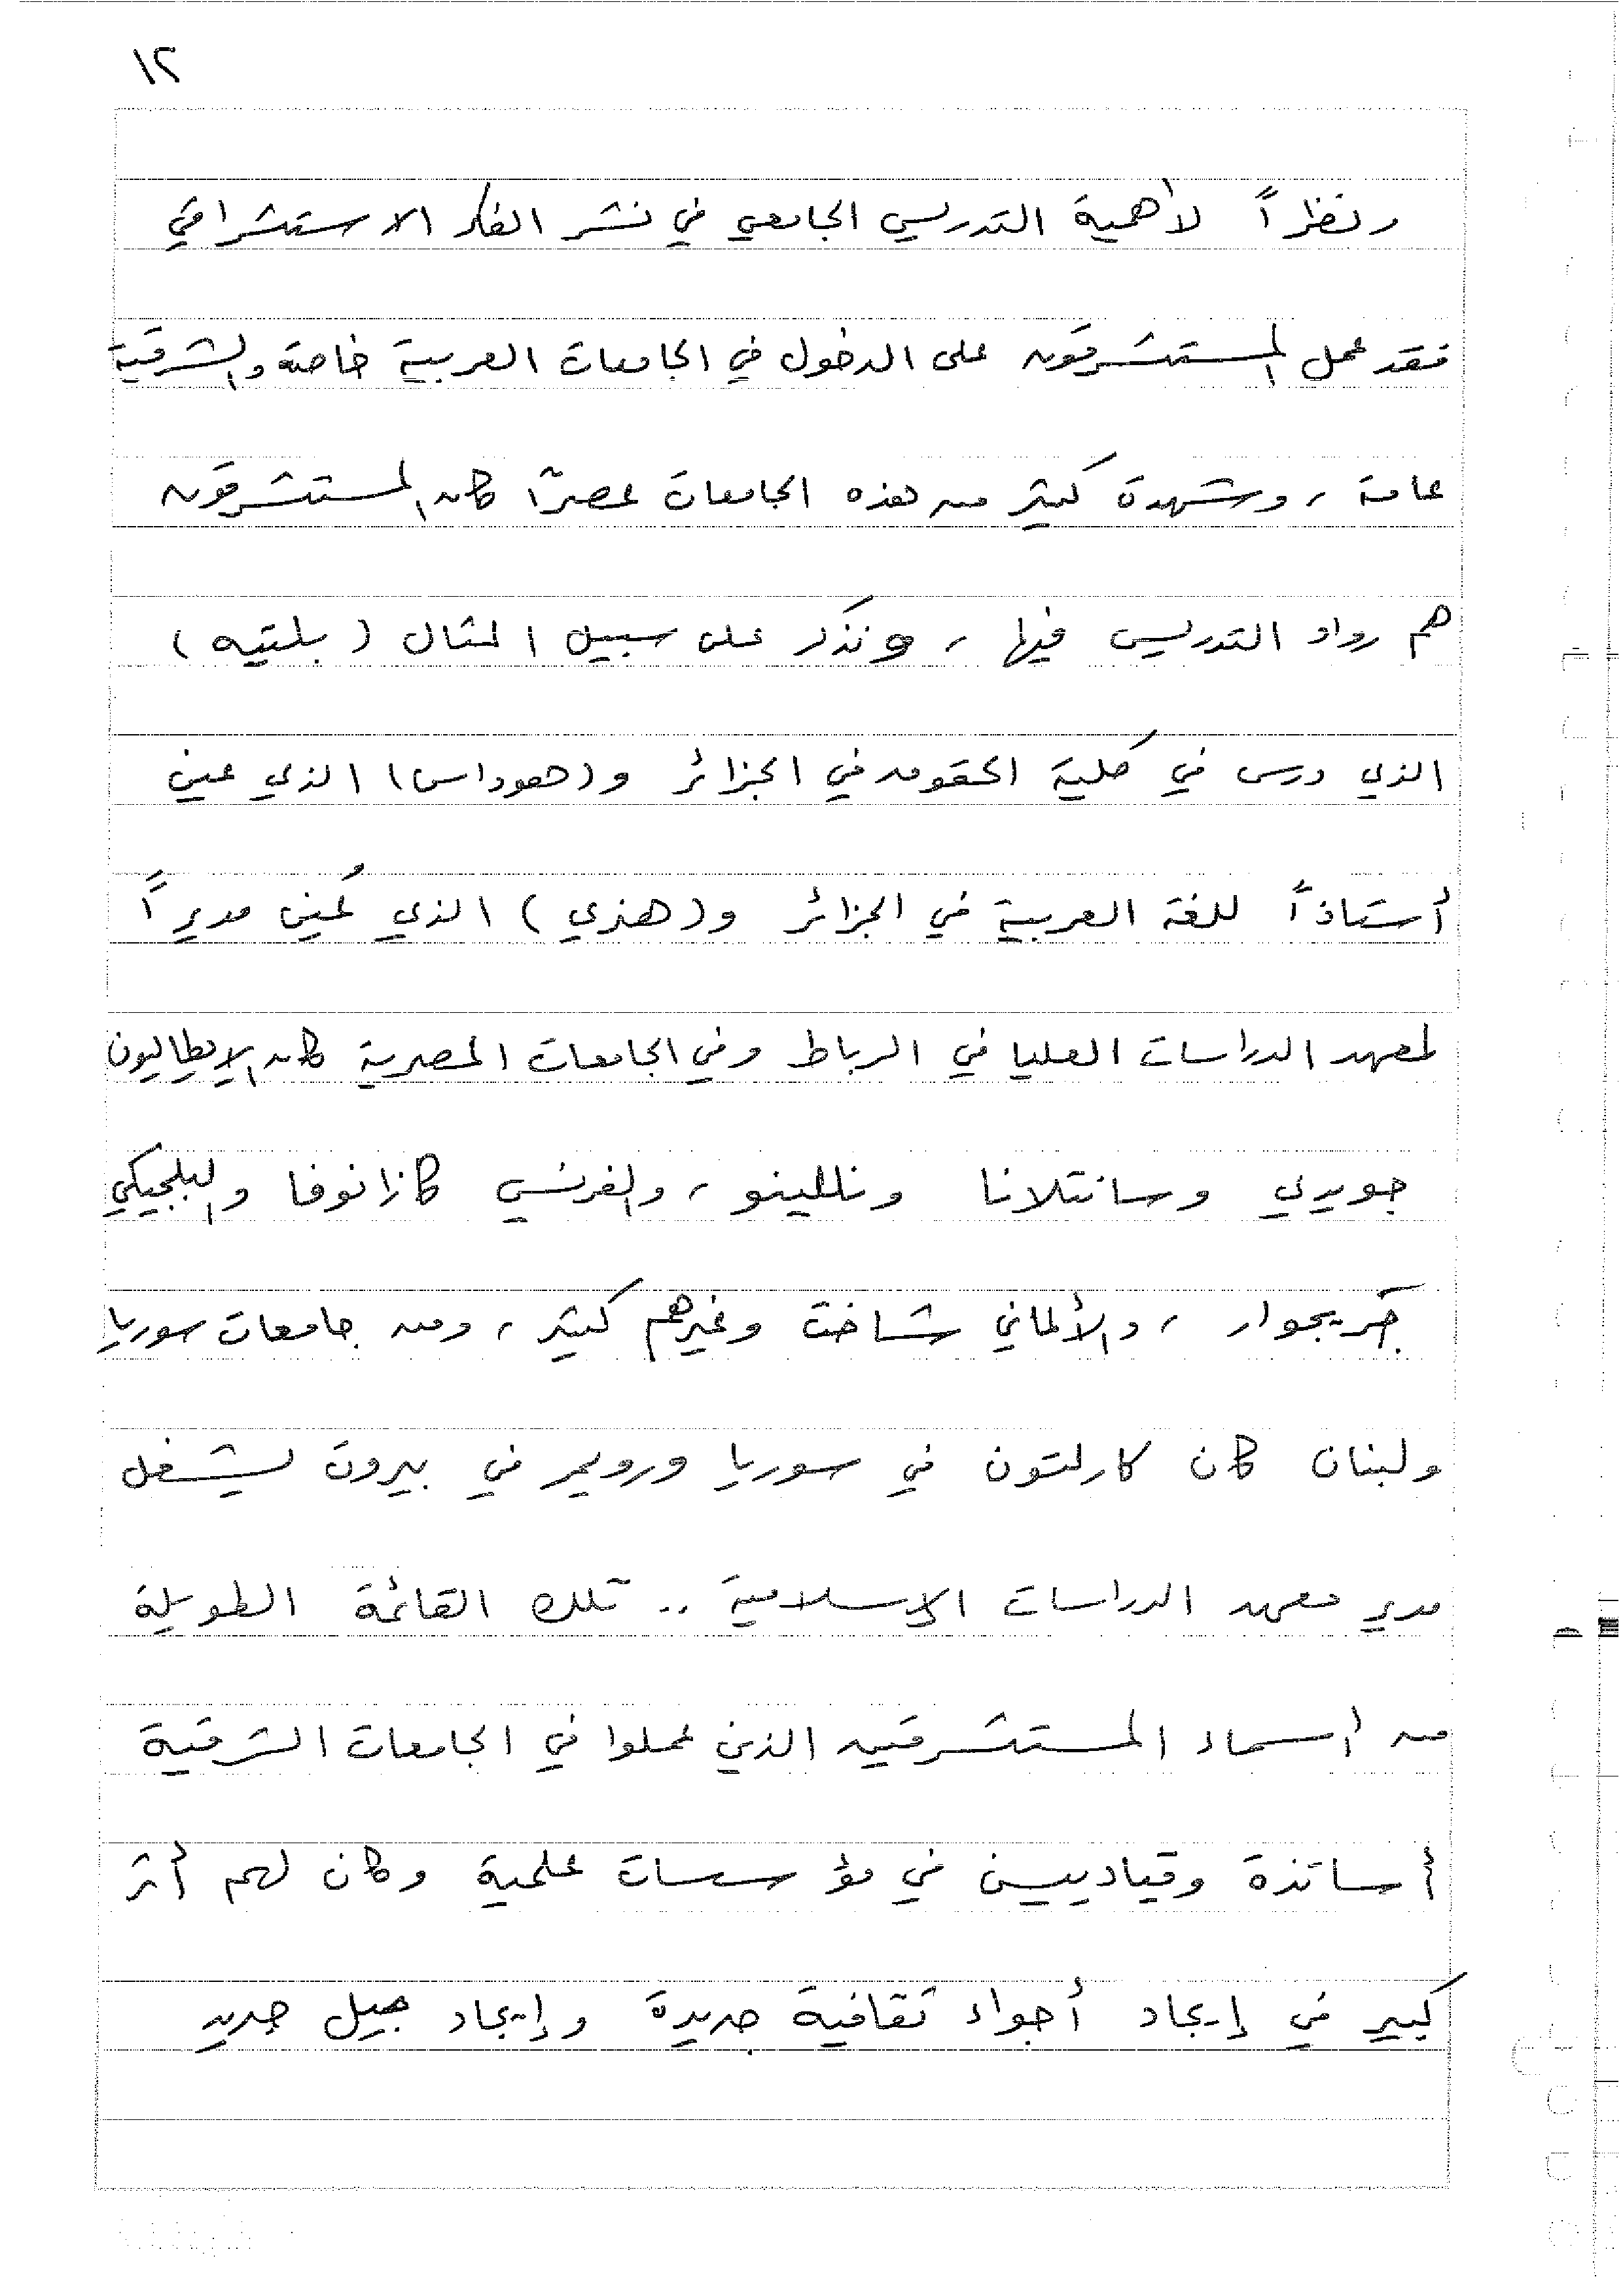 ١٢
ونظراً لأهمية التدريس الجامعي في نشر الفكر الاستشراقي
فقد عمل المستشرقون على الدخول في الجامعات العربية خاصة والشرقية
عامة ، وشهدت كثير من هذه الجامعات عصراً كان المستشرقون
هم رواد التدريس فيها ، ونذكر على سبيل المثال ( بلتيه )
الذي درس في كلية الحقوق في الجزائر و(هوداس) الذي عين
أستاذاً للغة العربية في الجزائر و(هنري) الذي عُين مديراً
لمعهد الدراسات العليا في الرباط وفي الجامعات المصرية كان الإيطاليون
جويدي وسانتلانا ونللينو ، والفرنسي كازانوفا والبلجيكي
جريجوار ، والألماني شاخت وغيرهم كثير ، ومن جامعات سوريا
ولبنان كان كارلتون في سوريا ورويمر في بيروت يشغل
مدير معهد الدراسات الإسلامية .. تلك القائمة الطويلة
من أسماء المستشرقين الذين عملوا في الجامعات الشرقية
أساتذة وقياديين في مؤسسات علمية وكان لهم أثر
كبير في إيجاد أجواء ثقافية جديدة وإيجاد جيل جديد